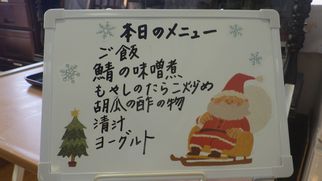 本日のメニュー
ご飯
鯖の味噌煮
もやしのたらこ炒め
胡瓜の酢の物
清汁
ヨーグルト